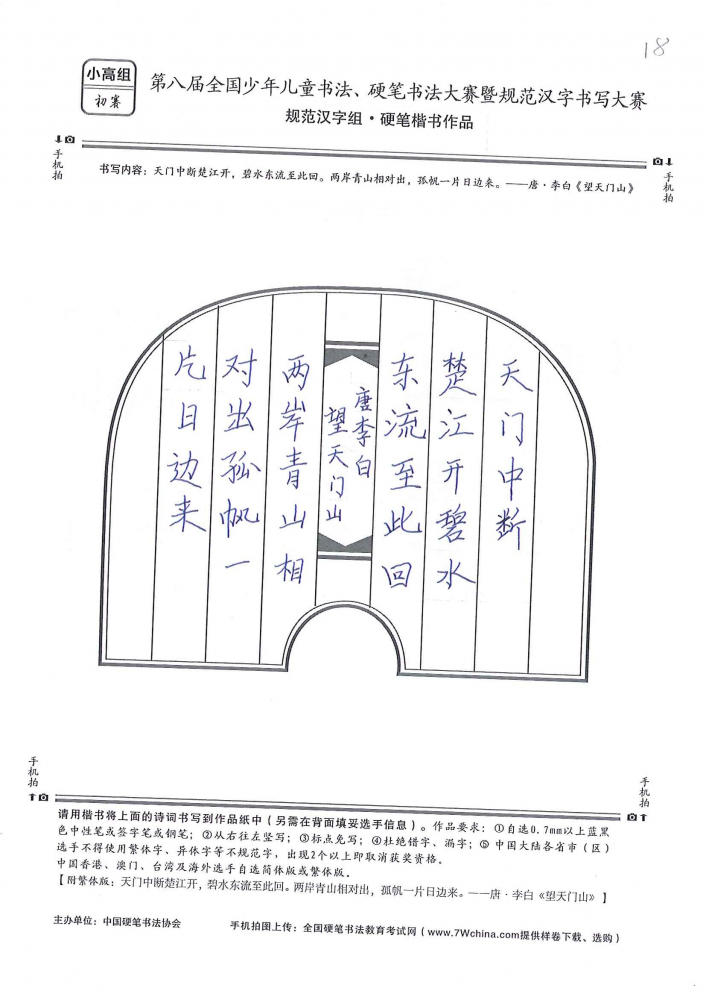 18
小高组
初赛
第八届全国少年儿童书法、硬笔书法大赛暨规范汉字书写大赛
规范汉字组·硬笔楷书作品
手机拍
手机拍
书写内容：天门中断楚江开，碧水东流至此回。两岸青山相对出，孤帆一片日边来。——唐·李白《望天门山》
天门中断
楚江开碧水
东流至此回
唐李白
望天门山
两岸青山相
对出孤帆一
片日边来
手机拍
手机拍
请用楷书将上面的诗词书写到作品纸中（另需在背面填妥选手信息）。作品要求：①自选0.7mm以上蓝黑
色中性笔或签字笔或钢笔；②从右往左竖写；③标点免写；④杜绝错字、漏字；⑤中国大陆各省市（区）
选手不得使用繁体字、异体字等不规范字，出现2个以上即取消获奖资格.
中国香港、澳门、台湾及海外选手自选简体版或繁体版.
【附繁体版：天门中断楚江开，碧水东流至此回。两岸青山相对出，孤帆一片日边来。——唐·李白《望天门山》】
主办单位：中国硬笔书法协会
手机拍图上传：全国硬笔书法教育考试网（www.7Wchina.com提供样卷下载、选购）